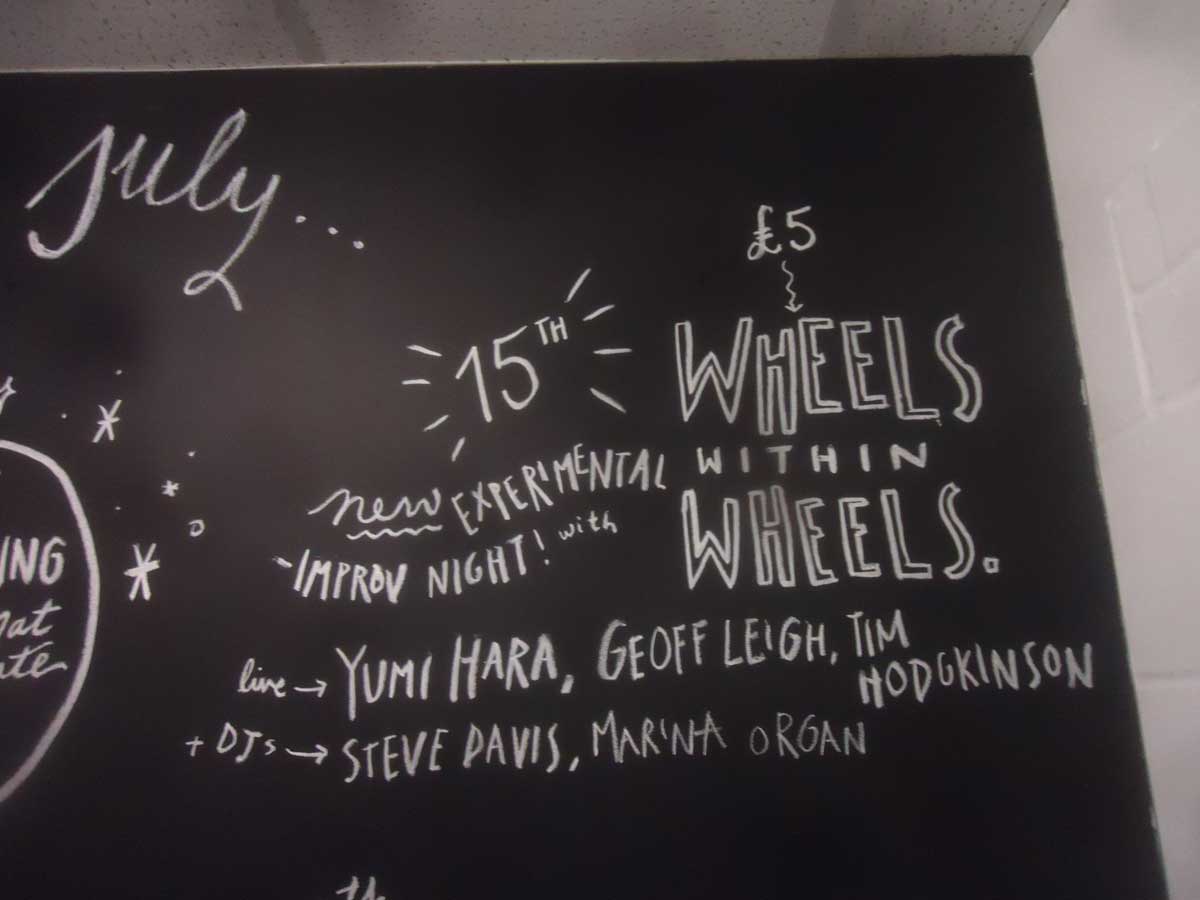 July...
£5
15TH
WHEELS
WITHIN
WHEELS.
new EXPERIMENTAL
IMPROV NIGHT! with
live → YUMI HARA, GEOFF LEIGH, TIM
HODGKINSON
+ DJs → STEVE DAVIS, MARINA ORGAN
ING
at
te
th